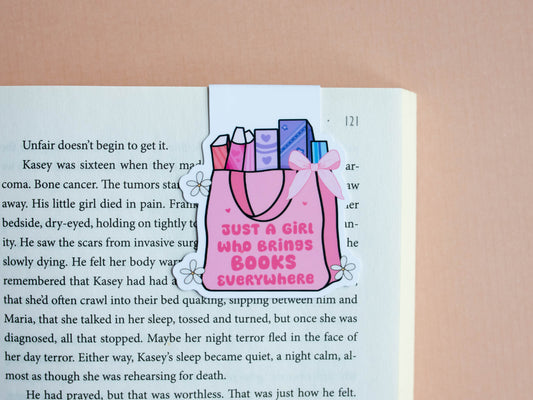 121
Unfair doesn't begin to get it.
Kasey was sixteen when they mad
coma. Bone cancer. The tumors
away. His little girl died in pain. Fran
bedside, dry-eyed, holding on tightly
ity. He saw the scars from invasive
slowly dying. He felt her body
remembered that Kasey had had a
that she'd often crawl into their bed quaking, slipping between him and
Maria, that she talked in her sleep, tossed and turned, but once she was
diagnosed, all that stopped. Maybe her night terror fled in the face of
her day terror. Either way, Kasey's sleep became quiet, a night calm, al-
most as though she was rehearsing for death.
He had prayed, but that was worthless. That was just how he felt.
JUST A GIRL
WHO BRINGS
BOOKS
EVERYWHERE